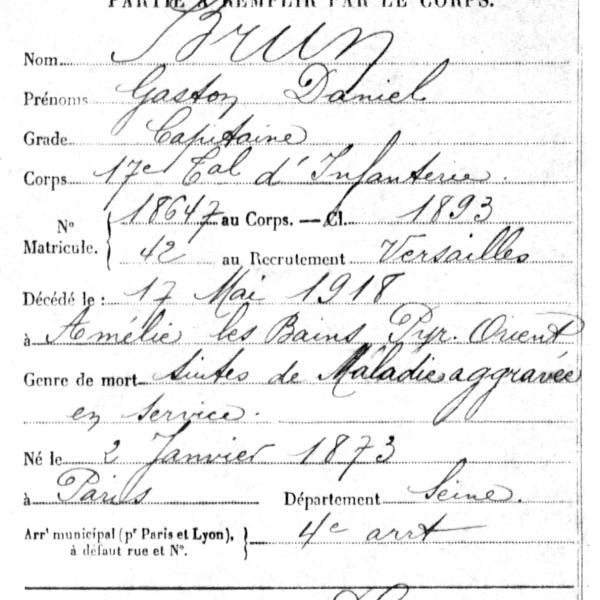 PARTIE A REMPLIR PAR LE CORPS.
Nom Brun
Prénoms Gaston Daniel
Grade Capitaine
Corps 17e Cal d'Infanterie.
N° Matricule. 18647 au Corps. — Cl. 1893
42 au Recrutement Versailles
Décédé le : 17 Mai 1918
à Amélie les Bains Pyr. Orient
Genre de mort suites de Maladie aggravée
en service.
Né le 2 Janvier 1873
à Paris Département Seine.
Arrt municipal (pr Paris et Lyon), 4e arrt
à défaut rue et N°.